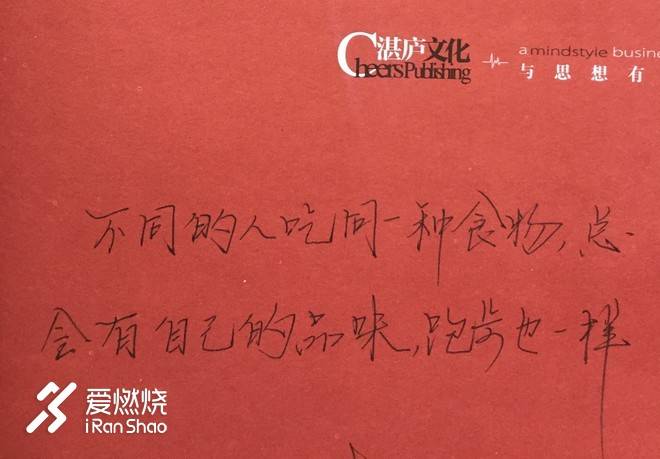 湛庐文化
Cheers Publishing
a mindstyle busine
与思想有
不同的人吃同一种食物,总
会有自己的品味,跑步也一样
爱燃烧
iRanShao